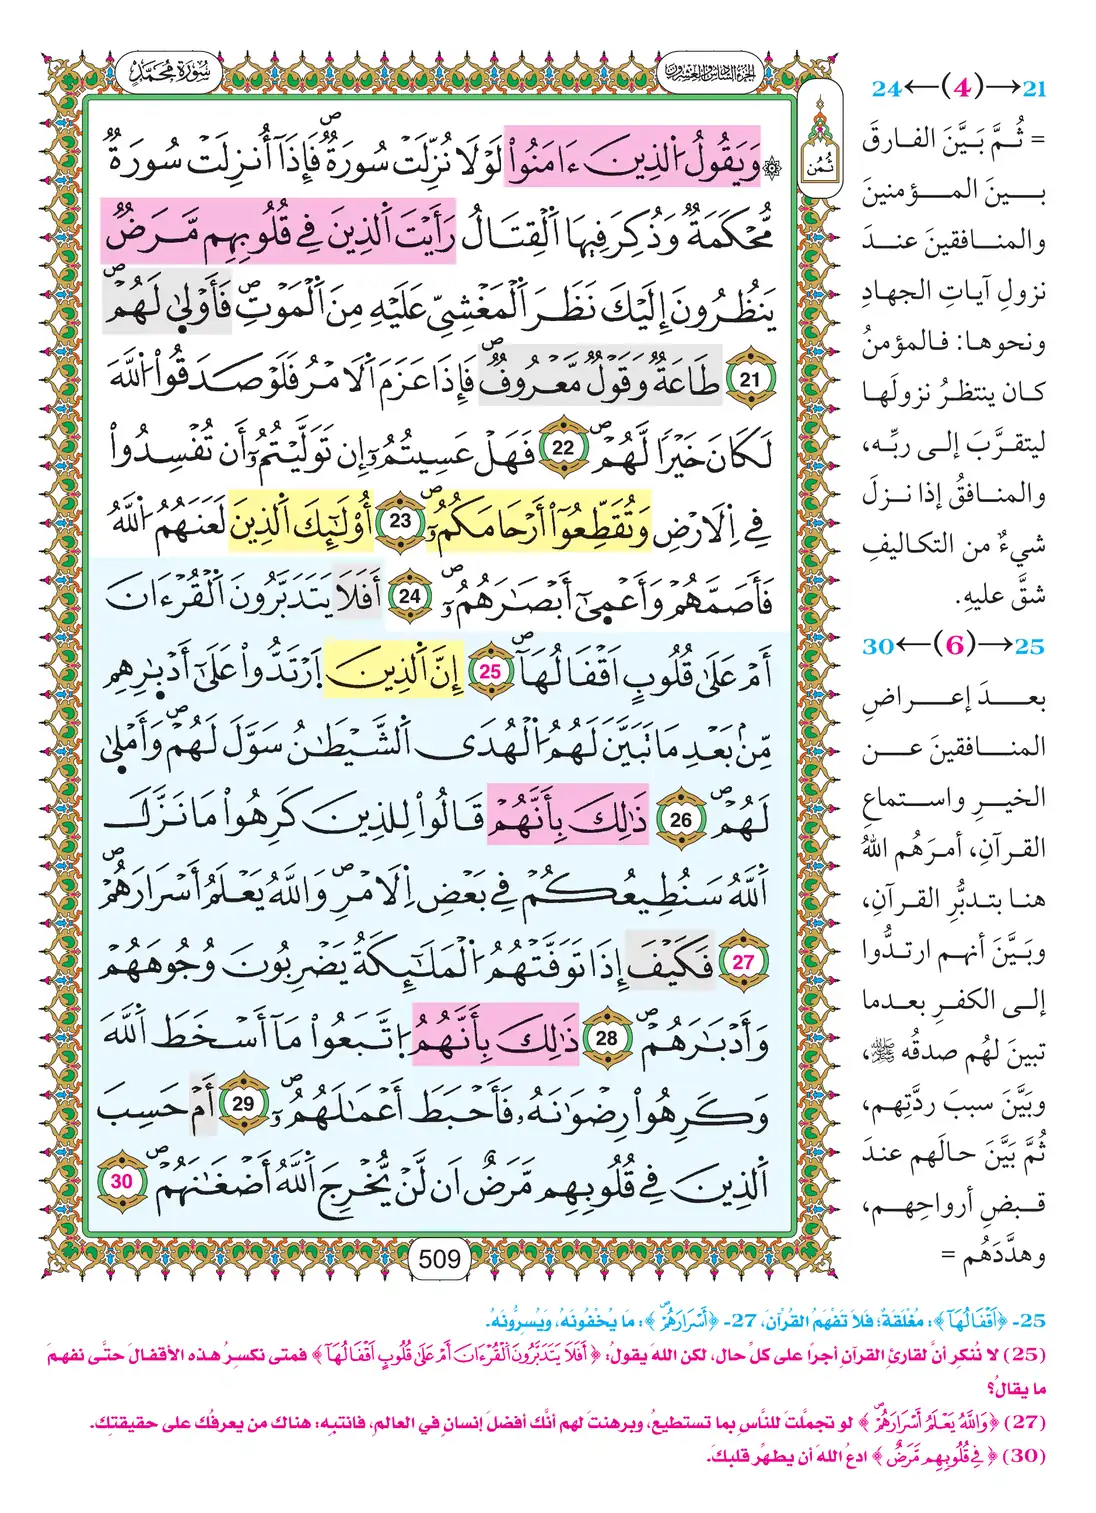 سُورَةُ مُحَمَّدٍ
الجزء السادس والعشرون
ثُمُن
۞ وَيَقُولُ اُ۬لذِينَ ءَامَنُواْ لَوْلَا نُزِّلَتْ سُورَةٞۖ فَإِذَآ أُنزِلَتْ سُورَةٞ
مُّحْكَمَةٞ وَذُكِرَ فِيهَا اَ۬لْقِتَالُ رَأَيْتَ اَ۬لذِينَ فِي قُلُوبِهِم مَّرَضٞ
يَنظُرُونَ إِلَيْكَ نَظَرَ اَ۬لْمَغْشِيِّ عَلَيْهِ مِنَ اَ۬لْمَوْتِۖ فَأَوْل۪ىٰ لَهُمْۖ
21 طَاعَةٞ وَقَوْلٞ مَّعْرُوفٞۖ فَإِذَا عَزَمَ اَ۬لَامْرُ فَلَوْ صَدَقُواْ اُ۬للَّهَ
لَكَانَ خَيْراٗ لَّهُمْۖ 22 فَهَلْ عَسِيتُمُۥٓ إِن تَوَلَّيْتُمُۥٓ أَن تُفْسِدُواْ
فِي اِ۬لَارْضِ وَتُقَطِّعُوٓاْ أَرْحَامَكُمُۥٓۖ 23 أُوْلَٰٓئِكَ اَ۬لذِينَ لَعَنَهُمُ اُ۬للَّهُ
فَأَصَمَّهُمْ وَأَعْم۪ىٰٓ أَبْصَٰرَهُمُۥٓۖ 24 أَفَلَا يَتَدَبَّرُونَ اَ۬لْقُرْءَانَ
أَمْ عَلَىٰ قُلُوبٍ اَقْفَالُهَآۖ 25 إِنَّ اَ۬لذِينَ اَ۪رْتَدُّواْ عَلَىٰٓ أَدْبٰ۪رِهِم
مِّنۢ بَعْدِ مَا تَبَيَّنَ لَهُمُ اُ۬لْهُدَى اَ۬لشَّيْطَٰنُ سَوَّلَ لَهُمْۖ وَأَمْل۪ىٰ
لَهُمْۖ 26 ذَٰلِكَ بِأَنَّهُمْ قَالُواْ لِلذِينَ كَرِهُواْ مَا نَزَّلَ
اَ۬للَّهُ سَنُطِيعُكُمْ فِي بَعْضِ اِ۬لَامْرِۖ وَاللَّهُ يَعْلَمُ أَسْرَارَهُمْۖ
27 فَكَيْفَ إِذَا تَوَفَّتْهُمُ اُ۬لْمَلَٰٓئِكَةُ يَضْرِبُونَ وُجُوهَهُمْ
وَأَدْبَٰرَهُمْۖ 28 ذَٰلِكَ بِأَنَّهُمُ اُ۪تَّبَعُواْ مَآ أَسْخَطَ اَ۬للَّهَ
وَكَرِهُواْ رِضْوَٰنَهُۥ فَأَحْبَطَ أَعْمَٰلَهُمُۥٓۖ 29 أَمْ حَسِبَ
اَ۬لذِينَ فِي قُلُوبِهِم مَّرَضٌ اَن لَّنْ يُّخْرِجَ اَ۬للَّهُ أَضْغَٰنَهُمْۖ 30
509
21→(4)←24
= ثُمَّ بَيَّنَ الفارقَ
بينَ المؤمنينَ
والمنافقينَ عندَ
نزولِ آياتِ الجهادِ
ونحوها: فالمؤمنُ
كان ينتظرُ نزولَها
ليتقرَّبَ إلى ربِّه،
والمنافقُ إذا نزلَ
شيءٌ من التكاليفِ
شقَّ عليهِ.
25→(6)←30
بعدَ إعراضِ
المنافقينَ عن
الخيرِ واستماعِ
القرآنِ، أمرَهُم اللهُ
هنا بتدبُّرِ القرآنِ،
وبَيَّنَ أنهم ارتدُّوا
إلى الكفرِ بعدما
تبينَ لهُم صدقُه ﷺ،
وبَيَّنَ سببَ ردَّتِهم،
ثُمَّ بَيَّنَ حالَهم عندَ
قبضِ أرواحِهم،
وهدَّدَهُم =
25- ﴿أَقْفَالُهَآ﴾: مُغْلَقَةٌ؛ فَلَا تَفْهَمُ القُرْآنَ، 27- ﴿أَسْرَارَهُمْۖ﴾: مَا يُخْفُونَهُ، وَيُسِرُّونَهُ.
(25) لا نُنكِر أنَّ لقارئِ القرآنِ أجرًا على كلِّ حال، لكن اللهَ يقولُ: ﴿أَفَلَا يَتَدَبَّرُونَ اَ۬لْقُرْءَانَ أَمْ عَلَىٰ قُلُوبٍ اَقْفَالُهَآ﴾ فمتى نكسرُ هذه الأقفالَ حتَّى نفهمَ
ما يقالُ؟
(27) ﴿وَاللَّهُ يَعْلَمُ أَسْرَارَهُمْۖ﴾ لو تجمَّلتَ للنَّاسِ بما تستطيعُ، وبرهنتَ لهم أنَّك أفضلَ إنسانٍ في العالم، فانتبه: هناك من يعرفُك على حقيقتِك.
(30) ﴿فِي قُلُوبِهِم مَّرَضٌ﴾ ادعُ اللهَ أن يطهِّر قلبكَ.